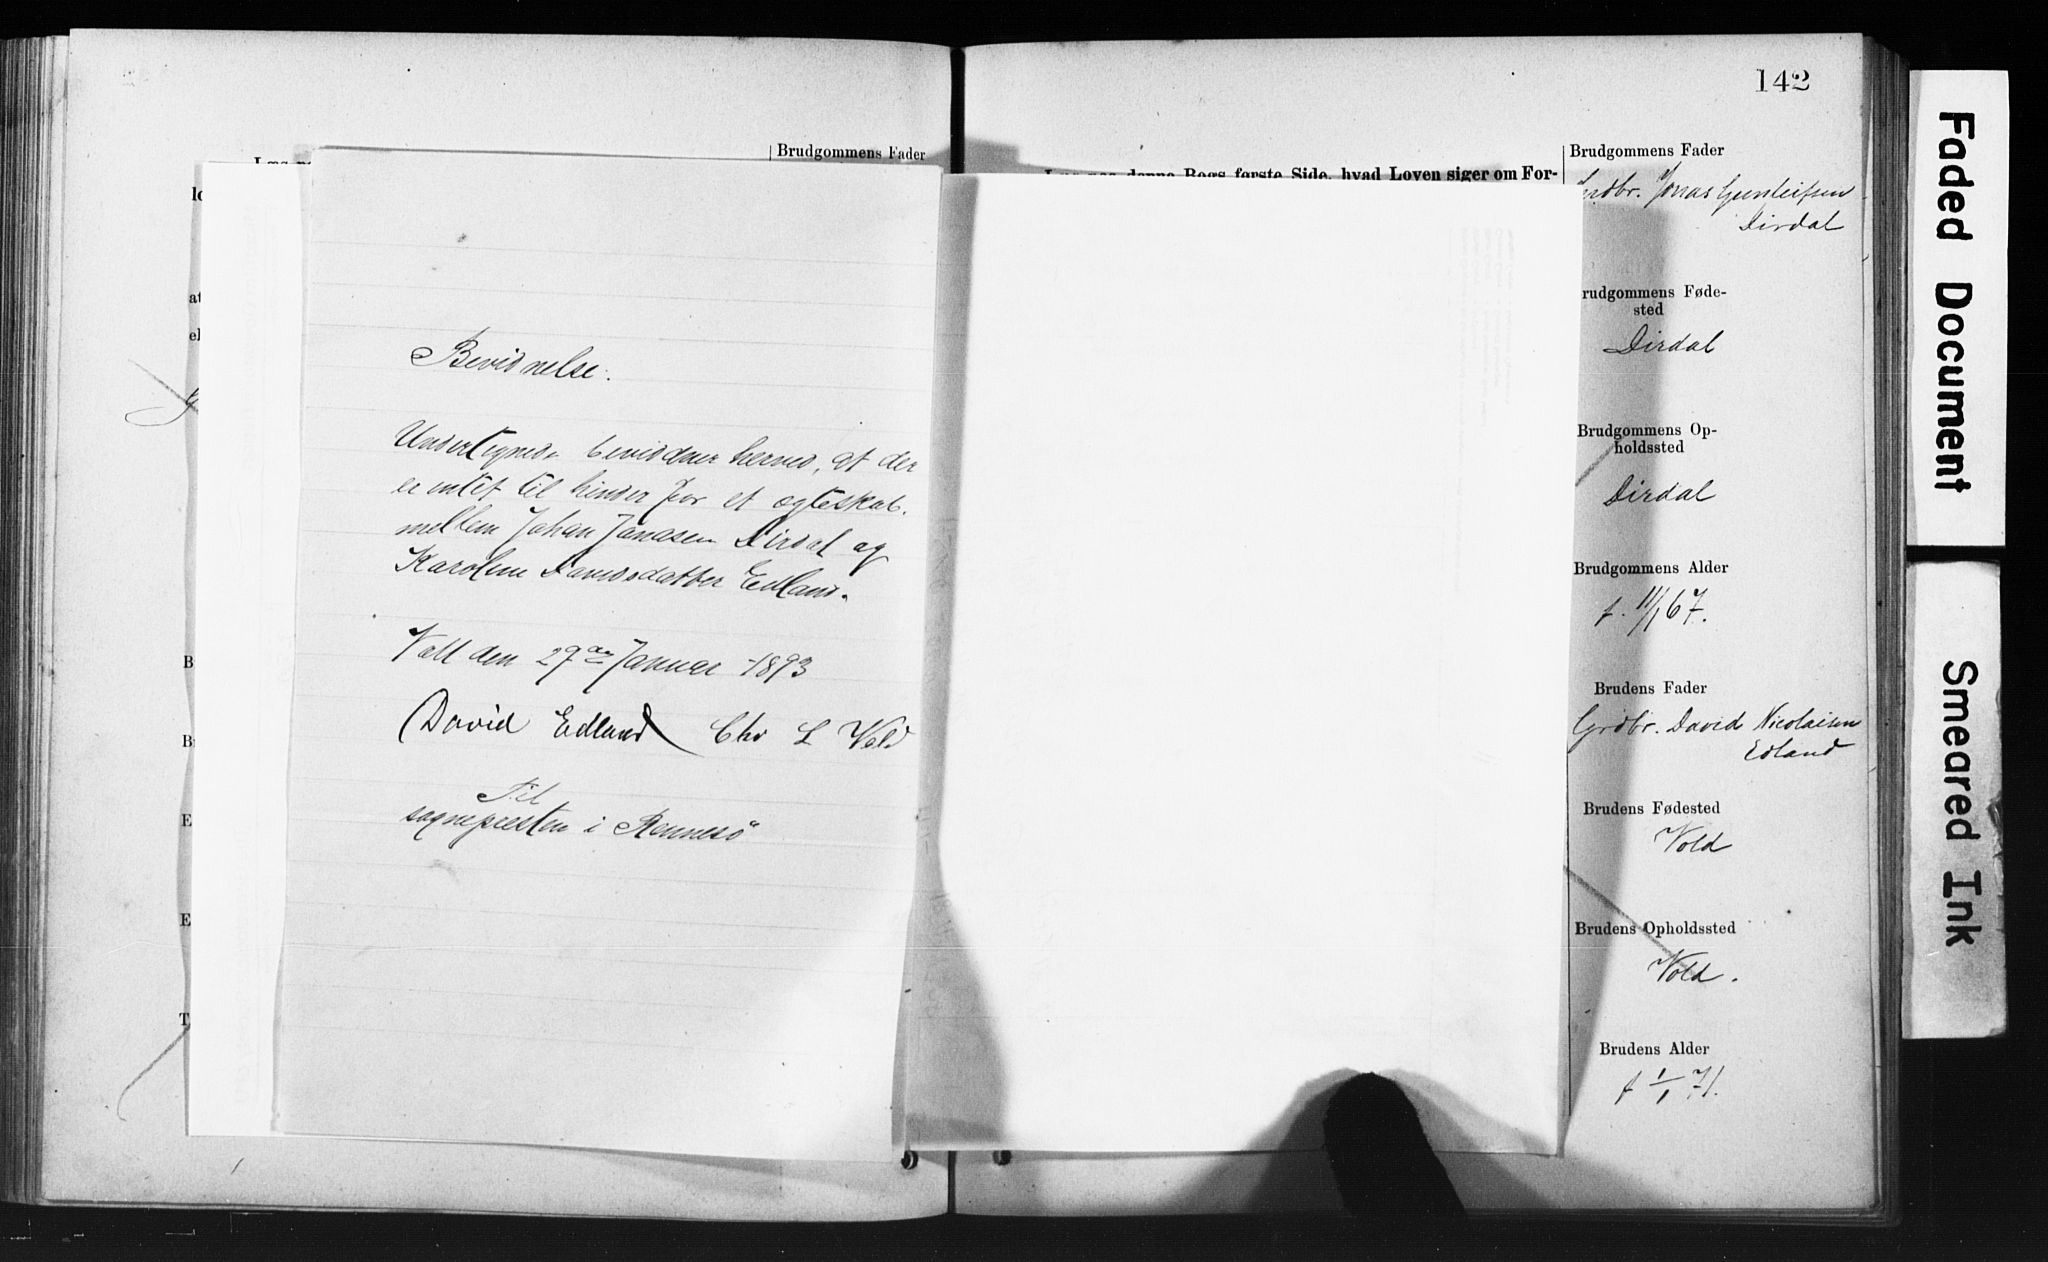 142
Brudgommens Fader
Bevidnelse.
Undertegnede bevidner herved, at der
er intet til hinder for et ægteskab
mellem Johan Jonasen Dirdal og
Karoline Davidsdatter Edland.
Voll den 29de Januar 1893
David Edland Chr L Vold
Til
sognepresten i Rennesö
denne Bogs første Side, hvad Loven siger om For-
Brudgommens Fader
Grdbr. Jonas Gunleifsen
Dirdal
rudgommens Føde-
sted
Dirdal
Brudgommens Op-
holdssted
Dirdal
Brudgommens Alder
f. 11/1 67.
Brudens Fader
Grdbr. David Nicolaisen
Edland
Brudens Fødested
Vold
Brudens Opholdssted
Vold.
Brudens Alder
f 1/1 71.
Faded Document
Smeared Ink